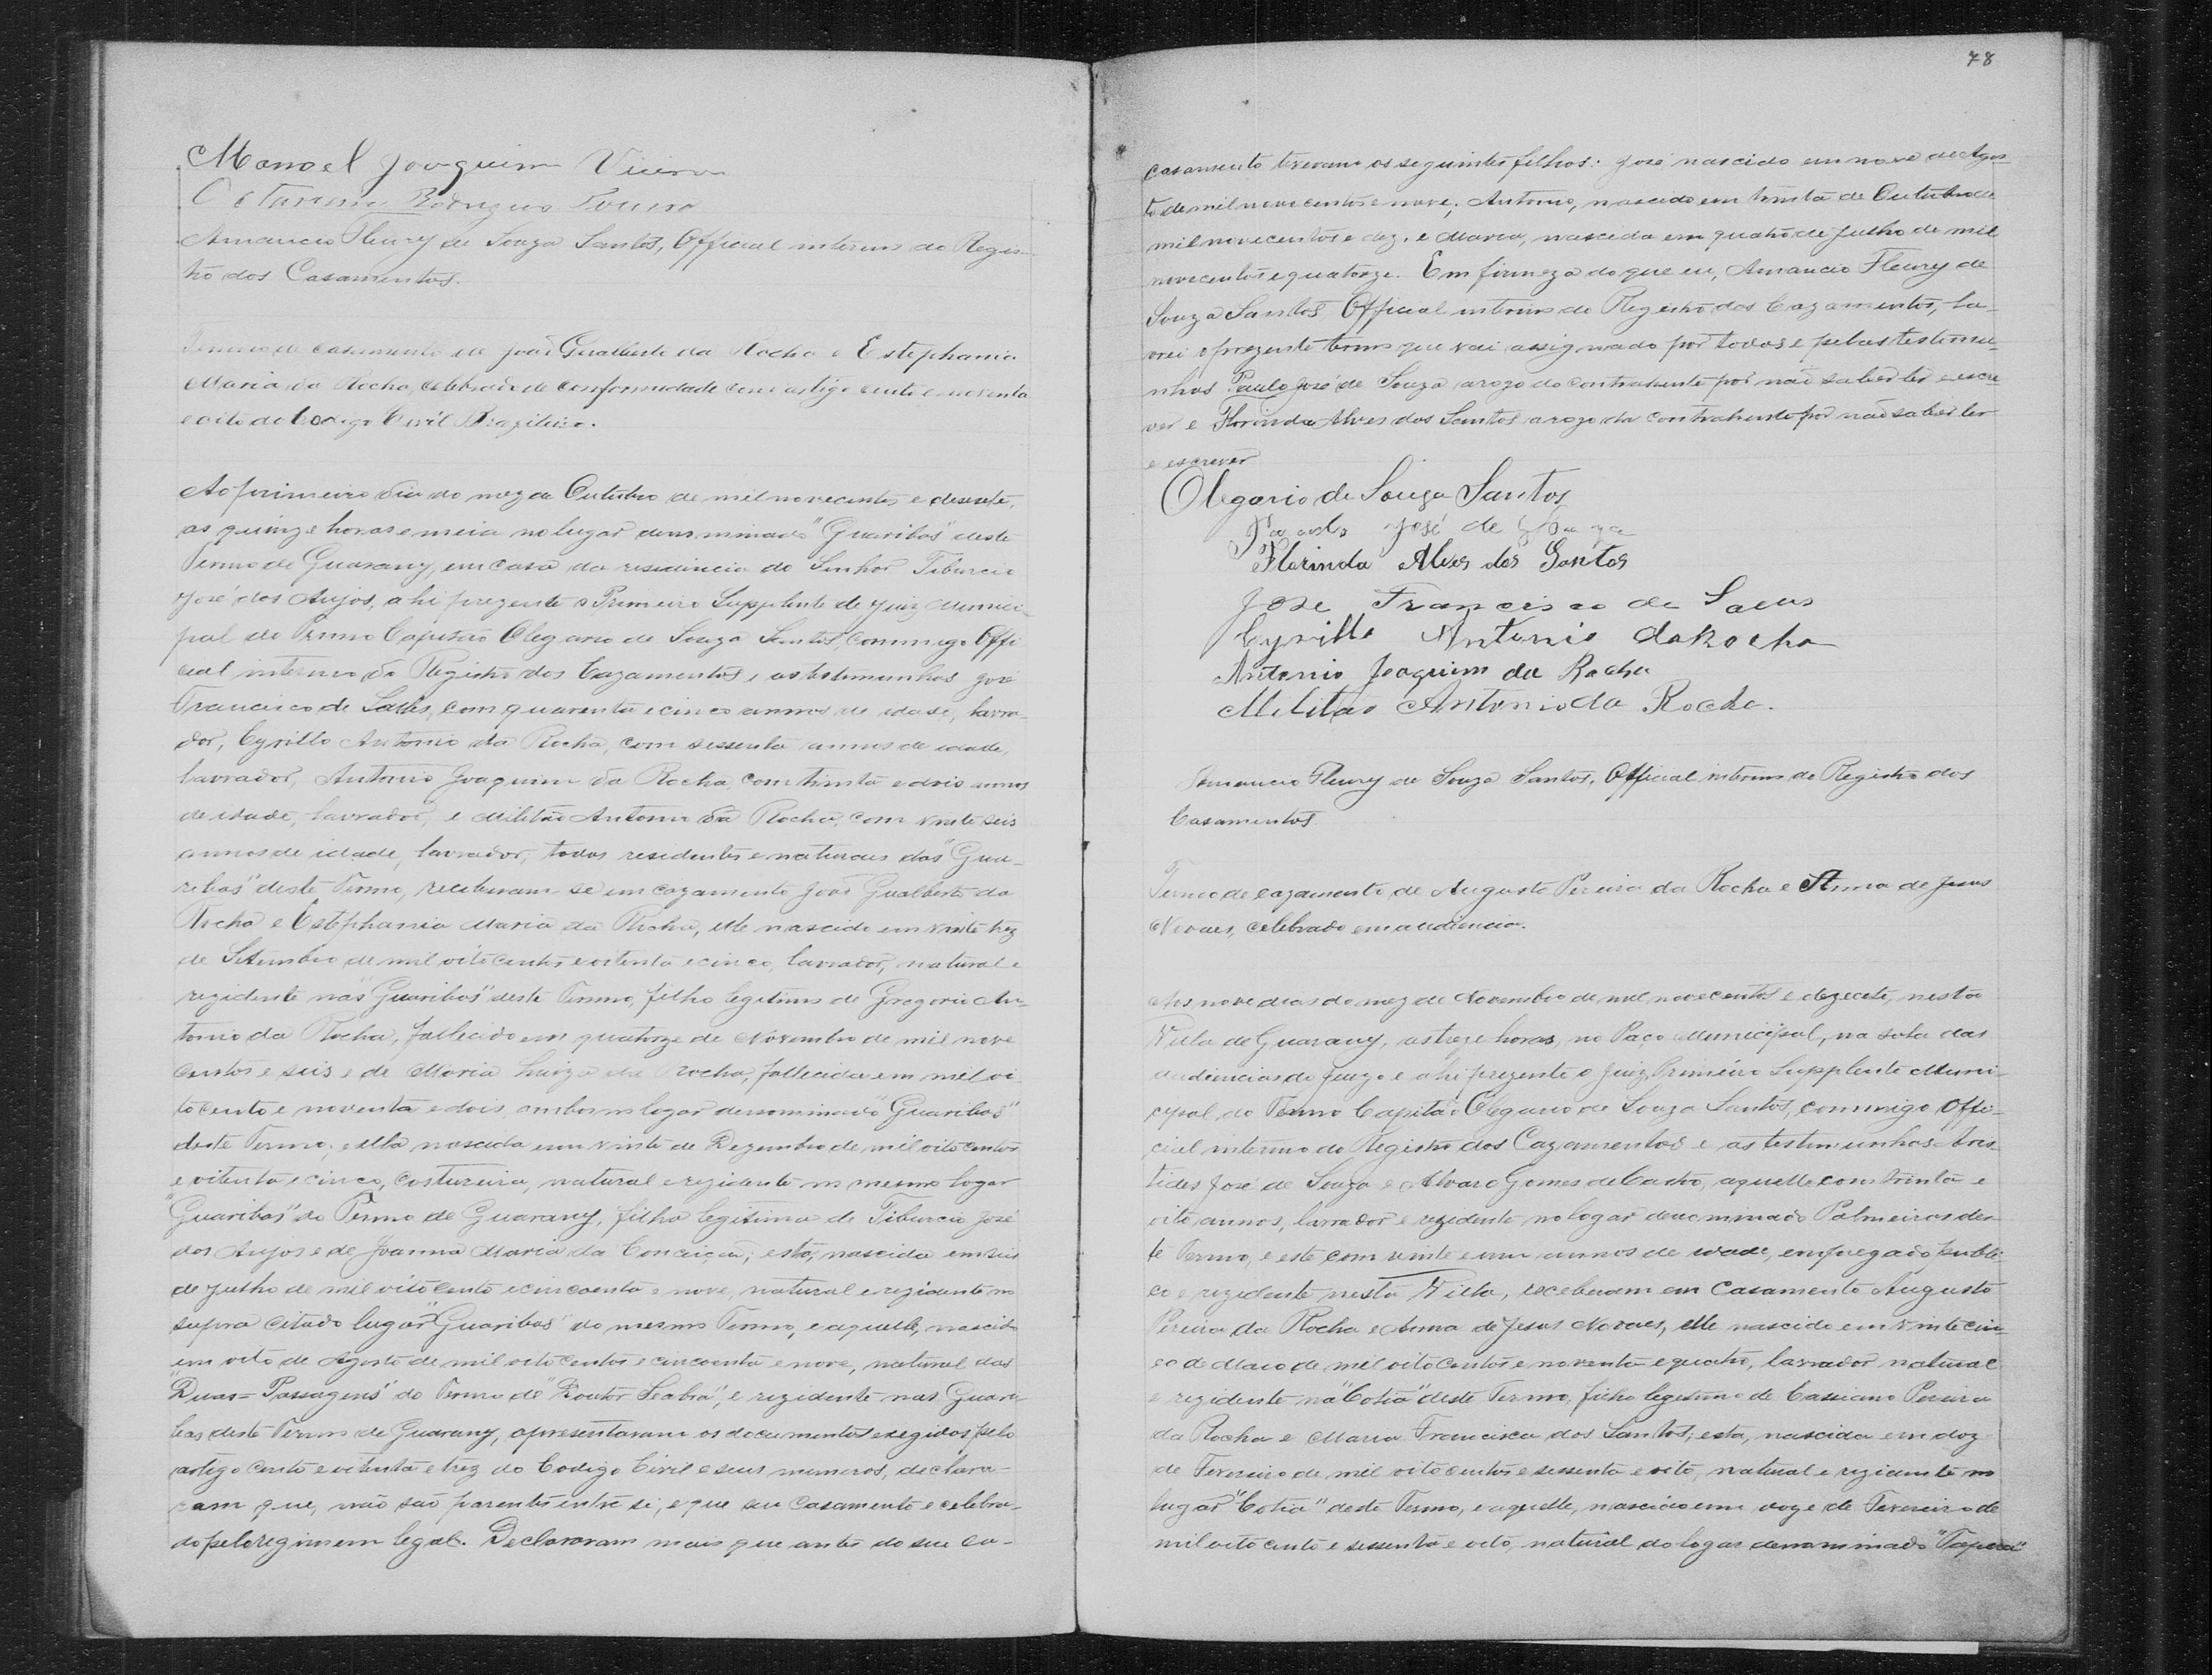 Manoel Joaquim Vieira
Rodrigues
Amancio Fleury de Souza Santos, Official interino do Regis-
tro dos Casamentos.
Termo de casamento de João Gualberto da Rocha e Estephania
Maria da Rocha, celebrado de conformidade com artigo cento e noventa
e oito do Codigo Civil Brazileiro.
Ao primeiro dia do mez de Outubro de mil novecentos e desesete,
as quinze horas e meia no lugar denominado "Guaribas" deste
Termo de Guarany, em casa da residencia do Senhor Tiburcio
José dos Anjos, ahi prezente o Primeiro Supplente de Juiz Munici-
pal do Termo Capitão Olegario de Souza Santos, commigo Offi-
cial interino do Registro dos Cazamentos e as testemunhas José
Francisco de Salles, com quarenta e cinco annos de idade, lavra-
dor, Cyrillo Antonio da Rocha, com sessenta annos de idade,
lavrador, Antonio Joaquim da Rocha, com trinta e dois annos
de idade, lavrador, e Militão Antonio da Rocha, com vinte seis
annos de idade, lavrador, todos residentes e naturaes das "Gua-
ribas" deste Termo, receberam-se em cazamento João Gualberto da
Rocha e Estephania Maria da Rocha, elle nascido em vinte trez
de Setembro de mil oitocentos e oitenta e cinco, lavrador, natural e
rezidente nas "Guaribas" deste Termo, filho legitimo de Gregorio An-
tonio da Rocha, fallecido em quatorze de Novembro de mil nove
centos e seis e de Maria Luiza da Rocha, fallecida em mil oi
to cento e noventa e dois, ambos no logar denominado "Guaribas"
deste Termo; e ella nascida em vinte de Dezembro de mil oito centos
e oitenta e cinco, costureira, natural e rezidente no mesmo logar
"Guaribas" do Termo de Guarany, filha legitima de Tiburcio José
dos Anjos e de Joanna Maria da Conceição; esta, nascida em seis
de Julho de mil oito cento e cincoenta e nove, natural e rezidente no
supra citado lugar "Guaribas" do mesmo Termo, e aquelle, nascido
em oito de Agosto de mil oito centos e cincoenta e nove, natural das
"Duas=Passagens" do Termo de "Doutor Seabra", e rezidente nas Guari-
bas deste Termo de Guarany, apresentaram os documentos exegidos pelo
artigo cento e oitenta e trez do Codigo Civil e seus numeros, declara-
ram que, não são parentes entre si, e que seu casamento e celebra-
do pelo regimem legal. Declararam mais que antes do seu ca-
78
casamento tiveram os seguintes filhos: José nascido em nove de Agos-
to de mil novecentos e nove; Antonio, nascido em trinta de Outubro de
mil novecentos e dez, e Maria, nascida em quatro de Julho de mil
novecentos e quatorze. Em firmeza do que eu, Amancio Fleury de
Souza Santos, Official interino do Registro dos Cazamentos, la-
vrei o prezente termo que vai assignado por todos e pelas testemu-
nhas Paulo José de Souza arogo do contrahente por não saber ler e escre-
ver e Florinda Alves dos Santos arogo da contrahente por não saber ler
e escrever
Olegario de Souza Santos
Paulo José de Souza
Florinda Alves dos Santos
José Francisco de Salles
Cyrillo Antonio da Rocha
Antonio Joaquim da Rocha
Militão Antonio da Rocha.
Amancio Fleury de Souza Santos, Official interino do Registro dos
Casamentos
Termo de cazamento de Augusto Pereira da Rocha e Anna de Jesus
Novaes, celebrado em audiencia.
Aos nove dias do mez de Novembro de mil novecentos e dezecete, nesta
Villa de Guarany, as treze horas, no Paço Municipal, na sala das
audiencias do Juizo e ahi prezente o Juiz, Primeiro Supplente Muni-
cipal do Termo Capitão Olegario de Souza Santos, commigo Offi-
cial interino do Registro dos Cazamentos e as testemunhas Aris-
tides José de Souza e Alvaro Gomes de Castro, aquelle com trinta e
oito annos, lavrador e rezidente no logar denominado Palmeiras des-
te Termo, e este com vinte e um annos de idade, empregado publi-
co e rezidente nesta Villa, receberam em Casamento Augusto
Pereira da Rocha e Anna de Jesus Novaes, elle nascido em vinte cin-
co de Maio de mil oito centos e noventa e quatro, lavrador natural
e rezidente na "Cotia" deste Termo, filho legitimo de Cassiano Pereira
da Rocha e Maria Francisca dos Santos; esta, nascida em doz
de Fevereiro de mil oito centos e sessenta e oito, natural e rezidente no
lugar "Cotia" deste Termo, e aquelle, nascido em doze de Fevereiro de
mil oito cento e sessenta e oito, natural do logar denominado "Tapera"